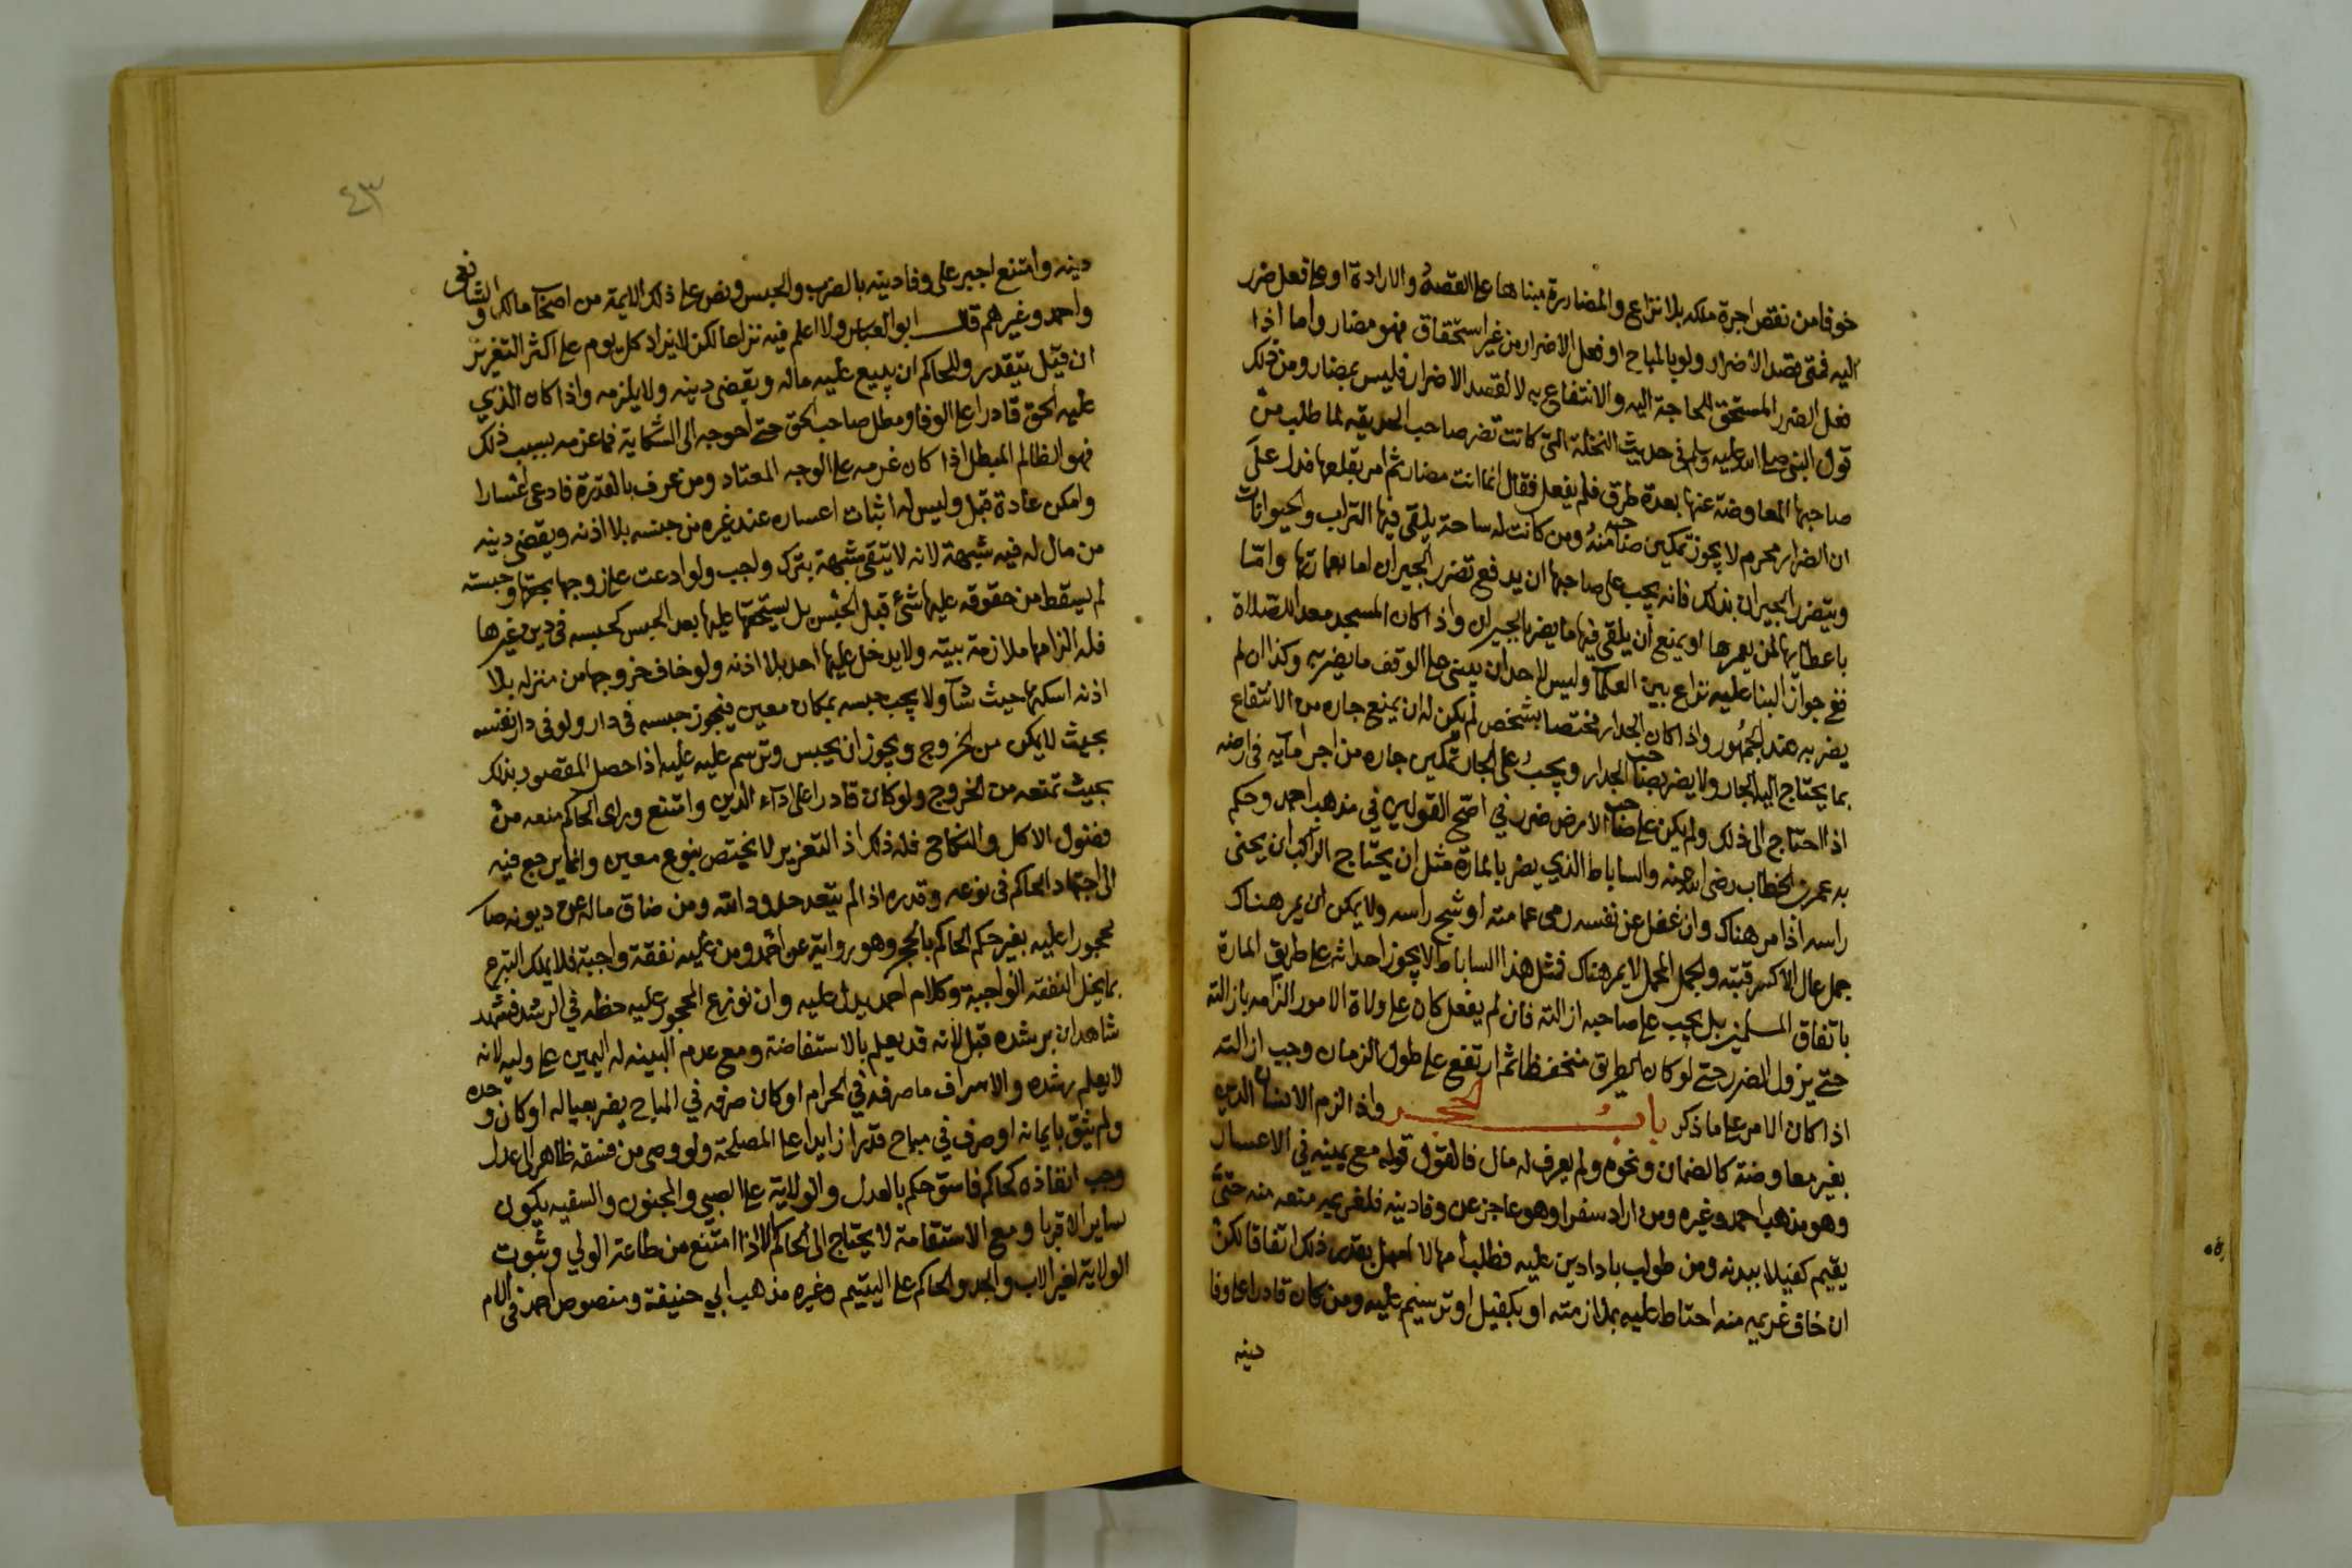 خوفا من نقص اجرة ملكه بلا نزاع والمضاررة مبناها على القصد والارادة او على فعل ضرر
اليه فمتى قصد الاضرار ولو بالمباح او فعل الاضرار من غير استحقاق فهو مضار واما اذا
فعل الضرر المستحق للحاجة اليه والانتفاع به لا لقصد الاضرار فليس بمضار ومن ذلك
قول النبي صلى الله عليه وسلم في حديث النخلة التي كانت تضر صاحب الحديقة لما طلب من
صاحبها المعاوضة عنها بعدة طرق فلم يفعل فقال انما انت مضار ثم امر بقلعها فدل على
ان الضرار محرم لا يجوز تمكين صاحبه منه ومن كانت له ساحة يلقى فيها التراب والحيوانات
ويتضرر الجيران بذلك فانه يجب على صاحبها ان يدفع تضرر الجيران اما بعمارتها واما
باعطايها لمن يعمرها او يمنع ان يلقى فيها ما يضر بالجيران واذا كان المسجد معدا للصلاة
ففي جواز البنا عليه نزاع بين العلما وليس لاحد ان يبنى على الوقف ما يضر به وكذا ان لم
يضر به عند الجمهور واذا كان الجدار مختصا بشخص لم يكن له ان يمنع جاره من الانتفاع
بما يحتاج اليه الجار ولا يضر بصاحب الجدار ويجب على الجار تمكين جاره من اجرا مآيه في ارضه
اذا احتاج الى ذلك ولم يكن على صاحب الارض ضرر في اصح القولين في مذهب احمد وحكم
به عمر بن الخطاب رضي الله عنه والساباط الذي يضر بالمارة مثل ان يحتاج الراكب ان يحنى
راسه اذا مر هناك وان غفل عن نفسه رمى عمامته او شج راسه ولا يمكن ان يمر هناك
جمل عال الا كسر قبته والجمل المحمل لا يمر هناك فمثل هذا الساباط لا يجوز احداثه على طريق المارة
باتفاق المسلمين بل يجب على صاحبه ازالته فان لم يفعل كان على ولاة الامور الزامه بازالته
حتى يزول الضرر حتى لو كان الطريق منخفظا ثم ارتفع على طول الزمان وجب ازالته
اذا كان الامر على ما ذكر باب الحجر واذا لزم الانسان الدين
بغير معاوضة كالضمان ونحوه ولم يعرف له مال فالقول قوله مع يمينه في الاعسار
وهو مذهب احمد وغيره ومن اراد سفرا وهو عاجز عن وفا دينه فلغريمه منعه منه حتى
يقيم كفيلا ببدنه ومن طولب بادا دين عليه فطلب امهالا امهل بقدر ذلك اتفاقا لكن
ان خاف غريمه منه احتاط عليه بملازمته او بكفيل او ترسيم عليه ومن كان قادرا على وفا
دينه
٤٣
دينه وامتنع اجبر على وفا دينه بالضرب والحبس ونص على ذلك الايمة من اصحاب مالك والشافعي
واحمد وغيرهم قال ابو العباس ولا اعلم فيه نزاعا لكن لا يزاد كل يوم على اكثر التعزير
ان قيل يتقدر وللحاكم ان يبيع عليه ماله ويقضى دينه ولا يلزمه واذا كان الذي
عليه الحق قادرا على الوفا ومطل صاحب الحق حتى احوجه الى الشكاية فما غرمه بسبب ذلك
فهو الظالم المبطل اذا كان غرمه على الوجه المعتاد ومن عرف بالقدرة فادعى اعسارا
وامكن عادة قبل وليس له اثبات اعساره عند غير من حبسه بلا اذنه ويقضى دينه
من مال له فيه شبهة لانه لا يتقى شبهة بترك واجب ولو ادعت على زوجها بحقها وحبسته
لم يسقط من حقوقه عليها شئ قبل الحبس بل يستحقها عليها بعد الحبس كحبسه في دين غيرها
فله الزامها ملازمة بيته ولا يدخل عليها احد بلا اذنه ولو خاف خروجها من منزله بلا
اذنه اسكنها حيث شآ ولا يجب حبسه بمكان معين فيجوز حبسه في دار ولو في دار نفسه
بحيث لا يمكن من الخروج ويجوز ان يحبس وترسم عليه عليه اذا حصل المقصود بذلك
بحيث تمنعه من الخروج ولو كان قادرا على ادآء الدين وامتنع وراى الحاكم منعه من
فضول الاكل والنكاح فله ذلك اذ التعزير لا يختص بنوع معين وانما يرجع فيه
الى اجتهاد الحاكم في نوعه وقدره اذا لم يتعد حدود الله ومن ضاق ماله عن ديونه صار
محجورا عليه بغير حكم الحاكم بالحجر وهو رواية عن احمد ومن عليه نفقة واجبة فلا يملك التبرع
بما يخل النفقة الواجبة وكلام احمد يدل عليه وان نوزع المحجور عليه حظه في الرشد فشهد
شاهدان برشده قبل لانه قد يعلم بالاستفاضة ومع عدم البينه له اليمين على وليه لانه
لا يعلم رشده والاسراف ما صرفه في الحرام او كان صرفه في المباح يضر بعياله او كان وحده
ولم يثق بايمانه او صرف في مباح قدرا زايدا على المصلحة ولو وصى من فسقه ظاهر الى عدل
وجب انفاذه كحاكم فاسق حكم بالعدل والولاية على الصبي والمجنون والسفيه يكون
لساير الاقربا ومع الاستقامة لا يحتاج الى الحاكم الا اذا امتنع من طاعة الولي وثبوت
الولاية لغير الاب والجد والحاكم على اليتيم وغيره مذهب ابي حنيفة ومنصوص احمد في الام